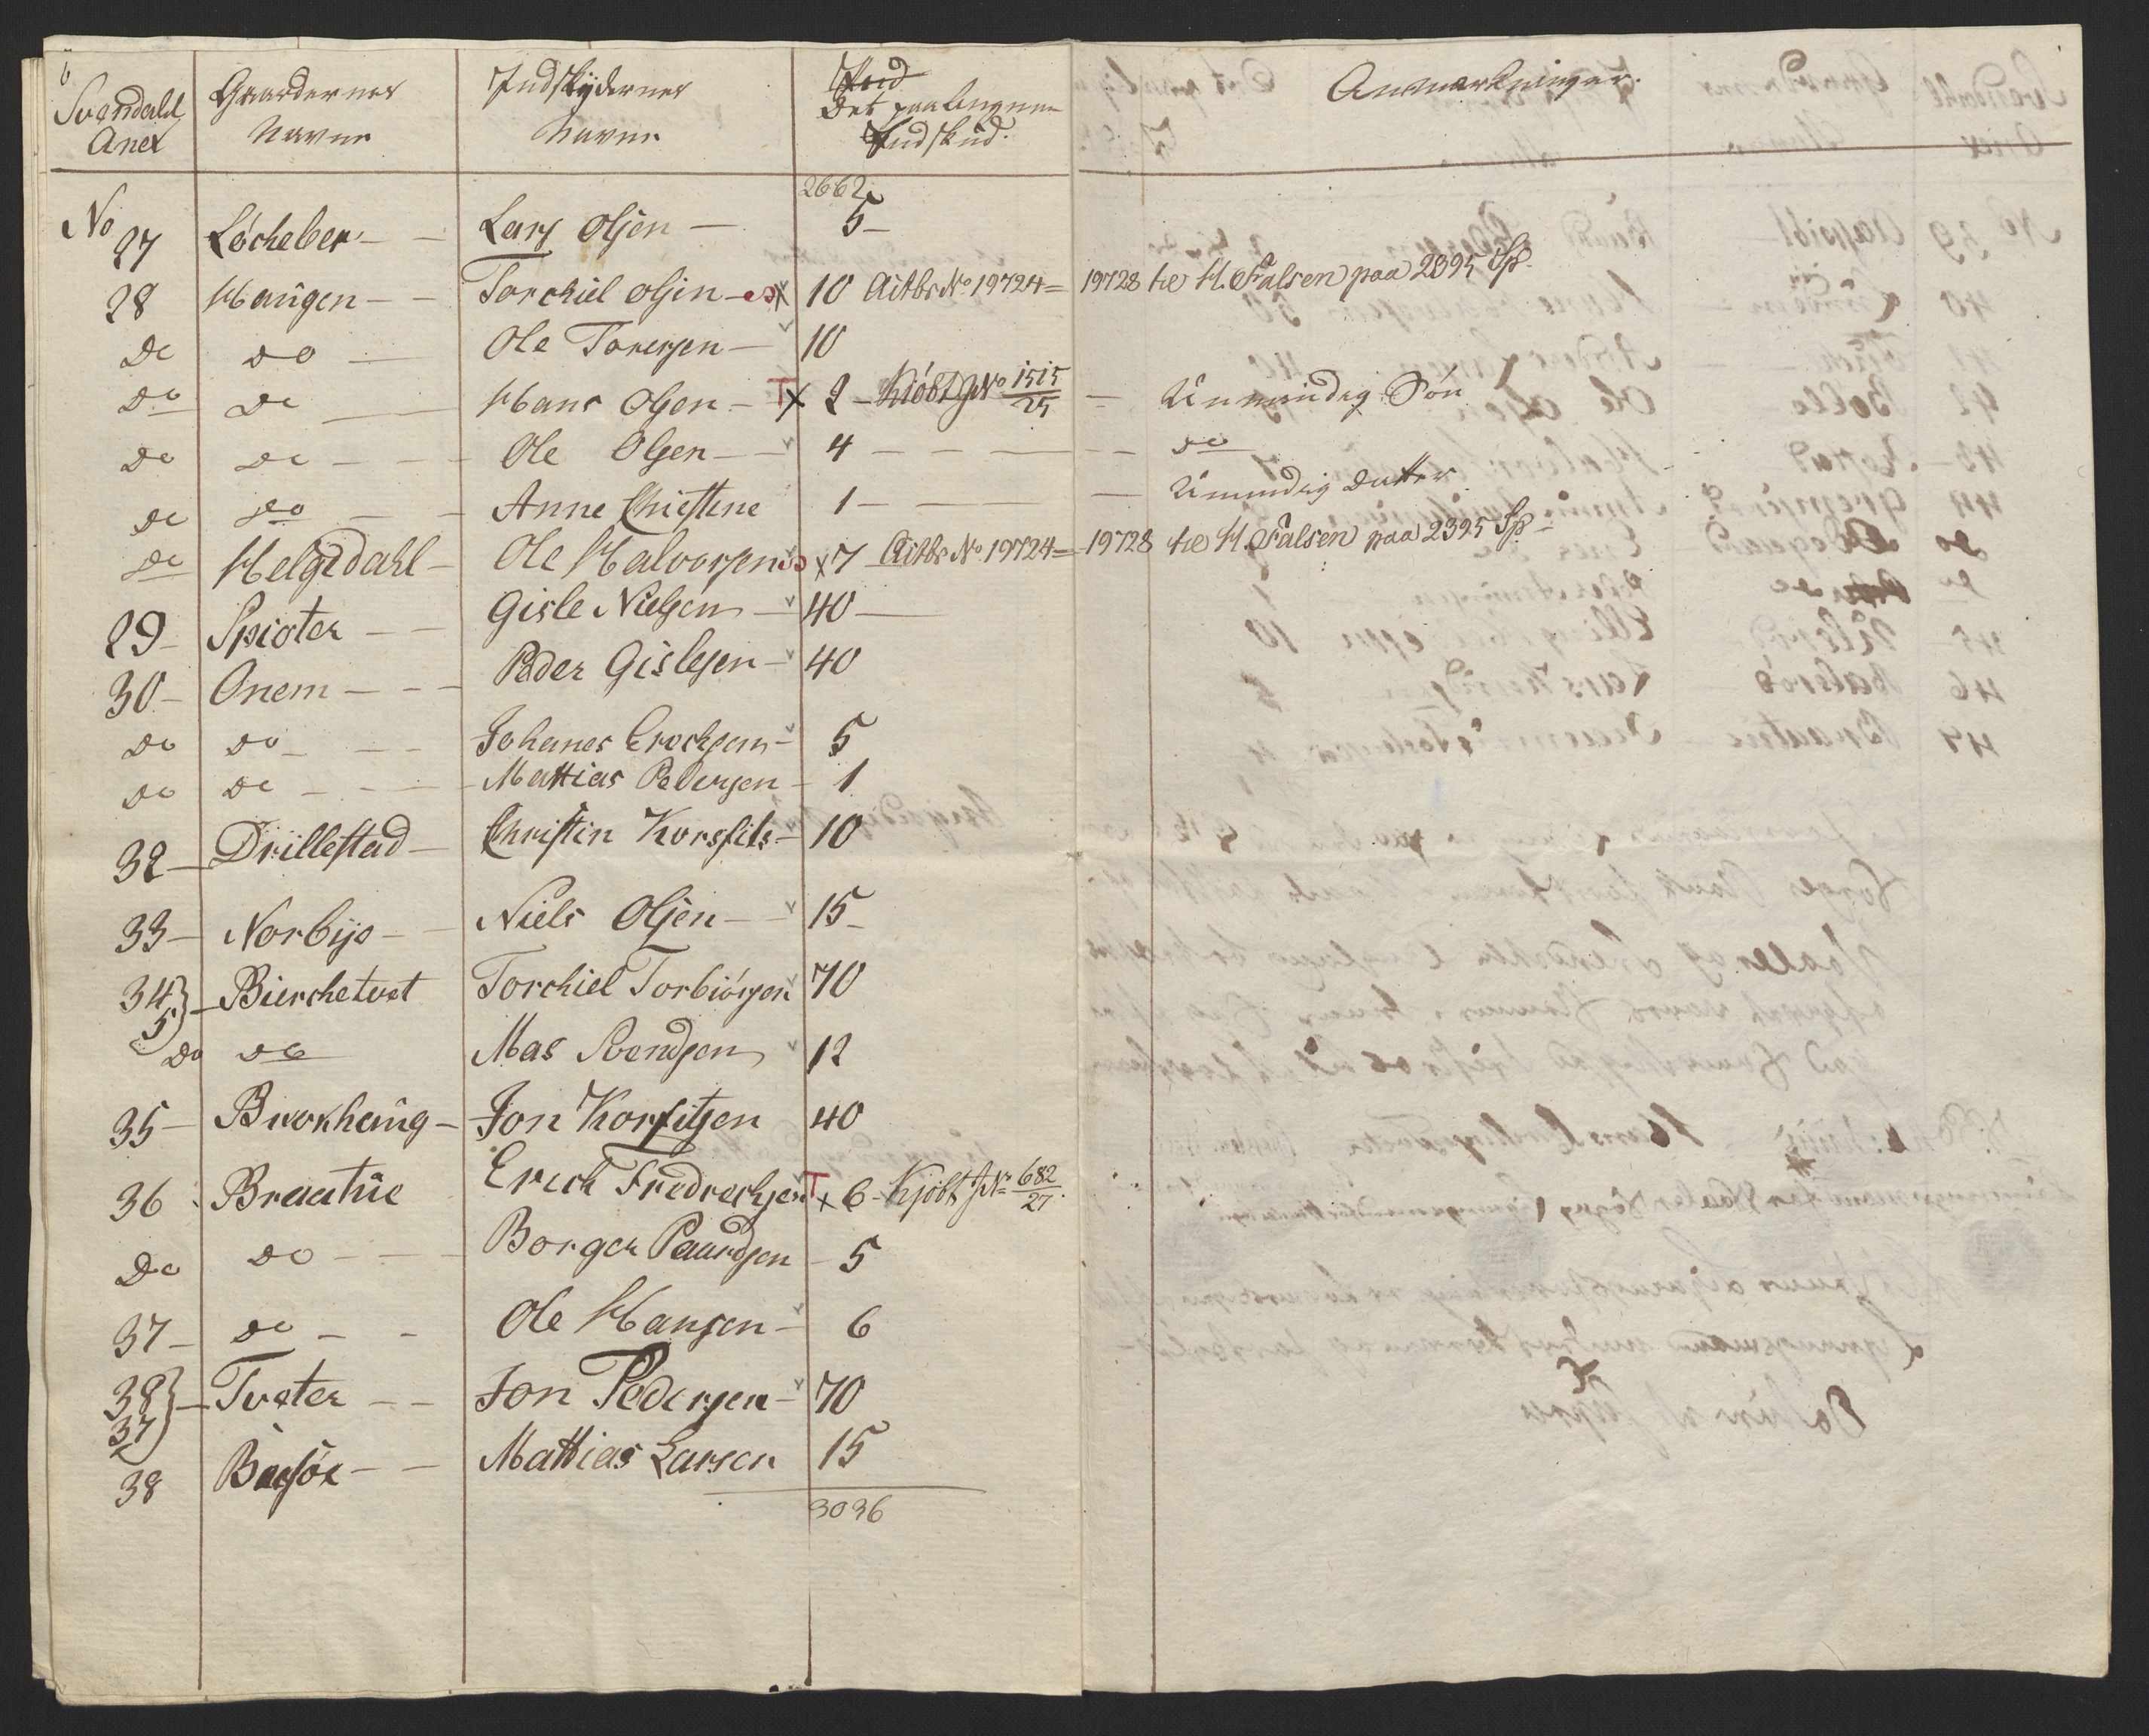 Svendahl Anex | Gaardernes Navne | Indskyderne Navne | Det paalignene Indskud. | Anmærkninger.
2662
No 27 Löcheber — Lars Olsen — 5 —
28 Haugen — Torchiel Olsen — x 10 Actbr No 19724 = 19728 til H. Falsen paa 2395 Sp.
Do do — Ole Toresen — 10
Do Do — Hans Olsen — T x 2 — Kiöbt J No 1515/25 — Unmindig Sön
Do Do — Ole Olsen — 4 — do
Do Do — Anne Chiestine 1 — Umindig Datter
Do Helgedahl — Ole Halvorsen x 7 Actbr No 19724 = 19728 til H. Falsen paa 2395 Sp —
29 — Spioter — Gisle Nielsen — 40 —
30 — Onem — Peder Gislesen — 40
Do Do — Johanes Erechsen — 5
Do Do — Mattias Pedersen — 1
32 — Drillestad — Christin Korsfits — 10
33 — Norbye — Niels Olsen — 15 —
34 5 } — Bierchetvet Torchiel Torbiörsen 70
Do Do Mas Svendsen 12
35 — Brokhaug — Jon Korfitsen 40
36 Braatue Erich Fredrechsen T x 6 — Kjöbt J No 682/27.
Do Do — Borger Paardsen — 5
37 — Do — Ole Hansen — 6
38 37 } — Tveter — Jon Pedersen — 70
38 Bagöe — Mattias Larsen 15
3036